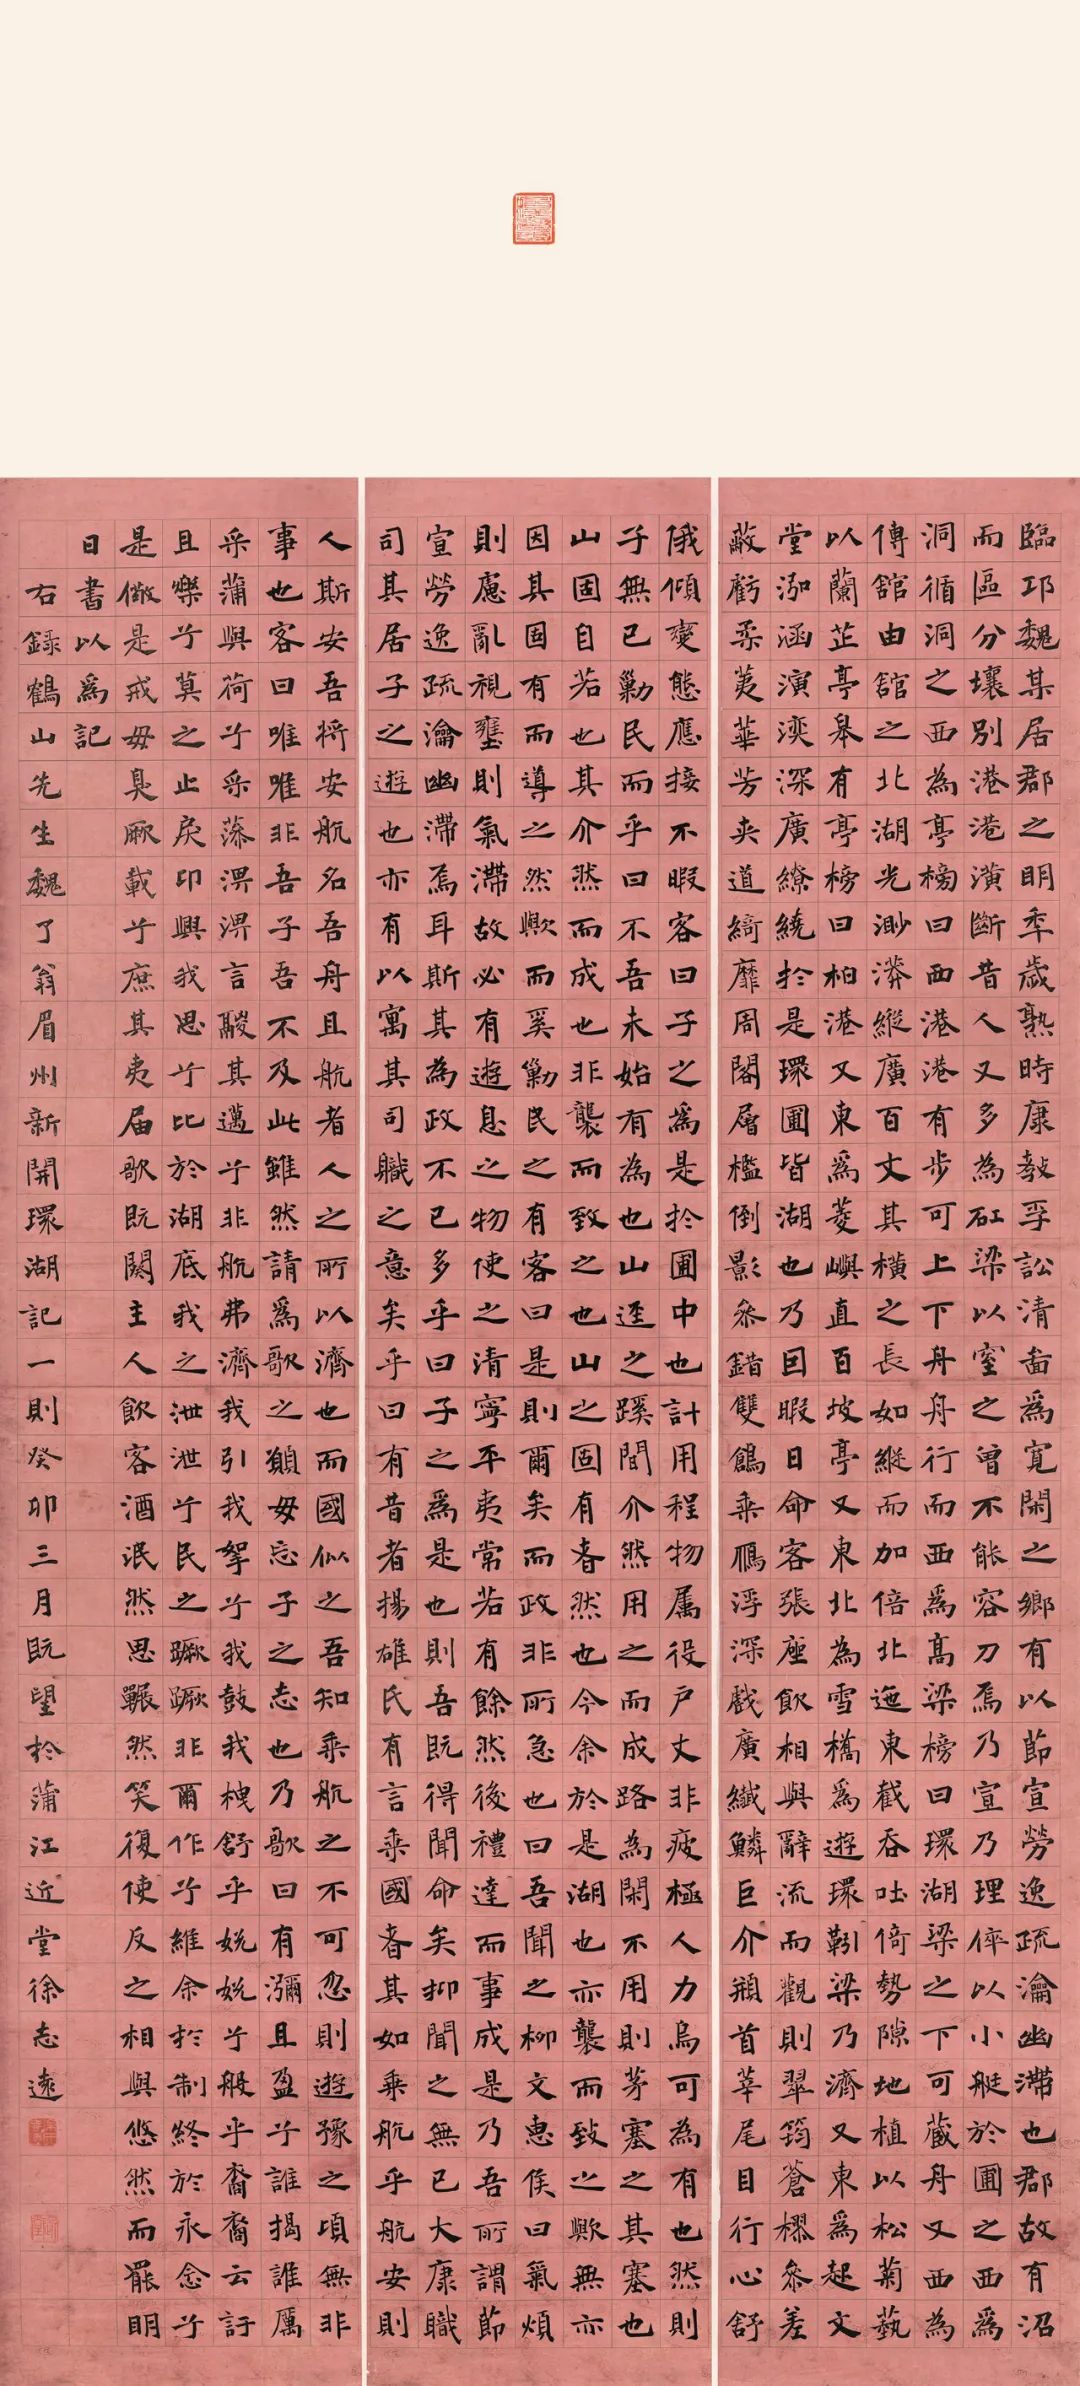 臨邛魏某居郡之明年歲熟時康教孚訟清啚爲寬閑之鄉有以節宣勞逸疏瀹幽滯也郡故有沼
而區分壤別港港潢斷昔人又多為矼梁以室之曾不能容刀焉乃宣乃理倅以小艇於圃之西爲
洞循洞之西為亭榜曰西港港有步可上下舟舟行而西爲高梁榜曰環湖梁之下可藏舟又西為
傳舘由舘之北湖光渺漭縱廣百丈其橫之長如縱而加倍北迤東截吞吐倚勢隙地植以松菊藝
以蘭芷亭皋有亭榜曰柏港又東爲菱嶼直百坡亭又東北為雪橋爲遊環靷梁乃濟又東爲起文
堂泓涵演渜深廣繚繞於是環圃皆湖也乃因暇日命客張座飲相與辭流而觀則翠筠蒼樛參差
蔽虧柔荑華芳夾道綺靡周閣層檻倒影參錯雙鷁乘鴈浮深戲廣纖鱗巨介頒首莘尾目行心舒
俄傾變態應接不暇客曰子之爲是於圃中也計用程物屬役戶丈非疲極人力烏可為有也然則
子無已勦民而乎曰不吾未始有為也山逕之蹊間介然用之而成路為閑不用則茅塞之其塞也
山固自若也其介然而成也非襲而致之也山之固有者然也今余於是湖也亦襲而致之歟無亦
因其固有而導之然歟而奚勦民之有客曰是則爾矣而政非所急也曰吾聞之柳文惠侯曰氣煩
則慮亂視壅則氣滯故必有遊息之物使之清寧平夷常若有餘然後禮達而事成是乃吾所謂節
宣勞逸疏瀹幽滯焉耳斯其為政不已多乎曰子之爲是也則吾既得聞命矣抑聞之無已大康職
司其居子之遊也亦有以寓其司職之意矣乎曰有昔者揚雄氏有言乘國者其如乘航乎航安則
人斯安吾將安航名吾舟且航者人之所以濟也而國似之吾知乘航之不可忽則遊豫之頃無非
事也客曰唯唯非吾子吾不及此雖然請爲歌之顙毋忘子之志也乃歌曰有瀰且盈兮誰揭誰厲
采蒲與荷兮采藻淠淠言駿其邁兮非航弗濟我引我挐兮我鼓我枻舒乎婗婗兮般乎裔裔云訏
且樂兮莫之止戾卬興我思兮比於湖底我之泄泄兮民之蹶蹶非爾作兮維余於制終於永念兮
是儆是戒毋臭厥載兮庶其夷屆歌既闋主人飲客酒泯然思囅然笑復使反之相與悠然而罷明
日書以爲記
右錄鶴山先生魏了翁眉州新開環湖記一則癸卯三月既望於蒲江近堂徐志遠